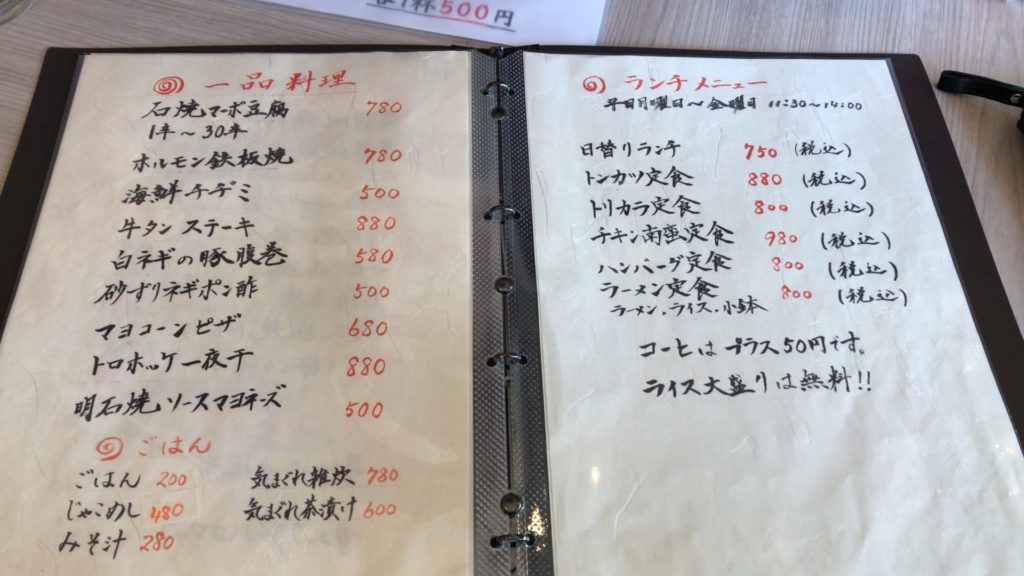 1杯500円
一品料理
石焼マーボ豆腐 780
1辛～30辛
ホルモン鉄板焼 780
海鮮チヂミ 500
牛タンステーキ 880
白ネギの豚腹巻 580
砂ずりネギポン酢 500
マヨコーンピザ 680
トロホッケ一夜干 880
明石焼ソースマヨネーズ 500
ごはん
ごはん 200 気まぐれ雑炊 780
じゃこめし 480 気まぐれ茶漬け 600
みそ汁 280
ランチメニュー
平日月曜日～金曜日 11:30～14:00
日替りランチ 750 (税込)
トンカツ定食 880 (税込)
トリカラ定食 800 (税込)
チキン南蛮定食 980 (税込)
ハンバーグ定食 800 (税込)
ラーメン定食 800 (税込)
ラーメン、ライス、小鉢
コーヒはプラス50円です。
ライス大盛りは無料!!